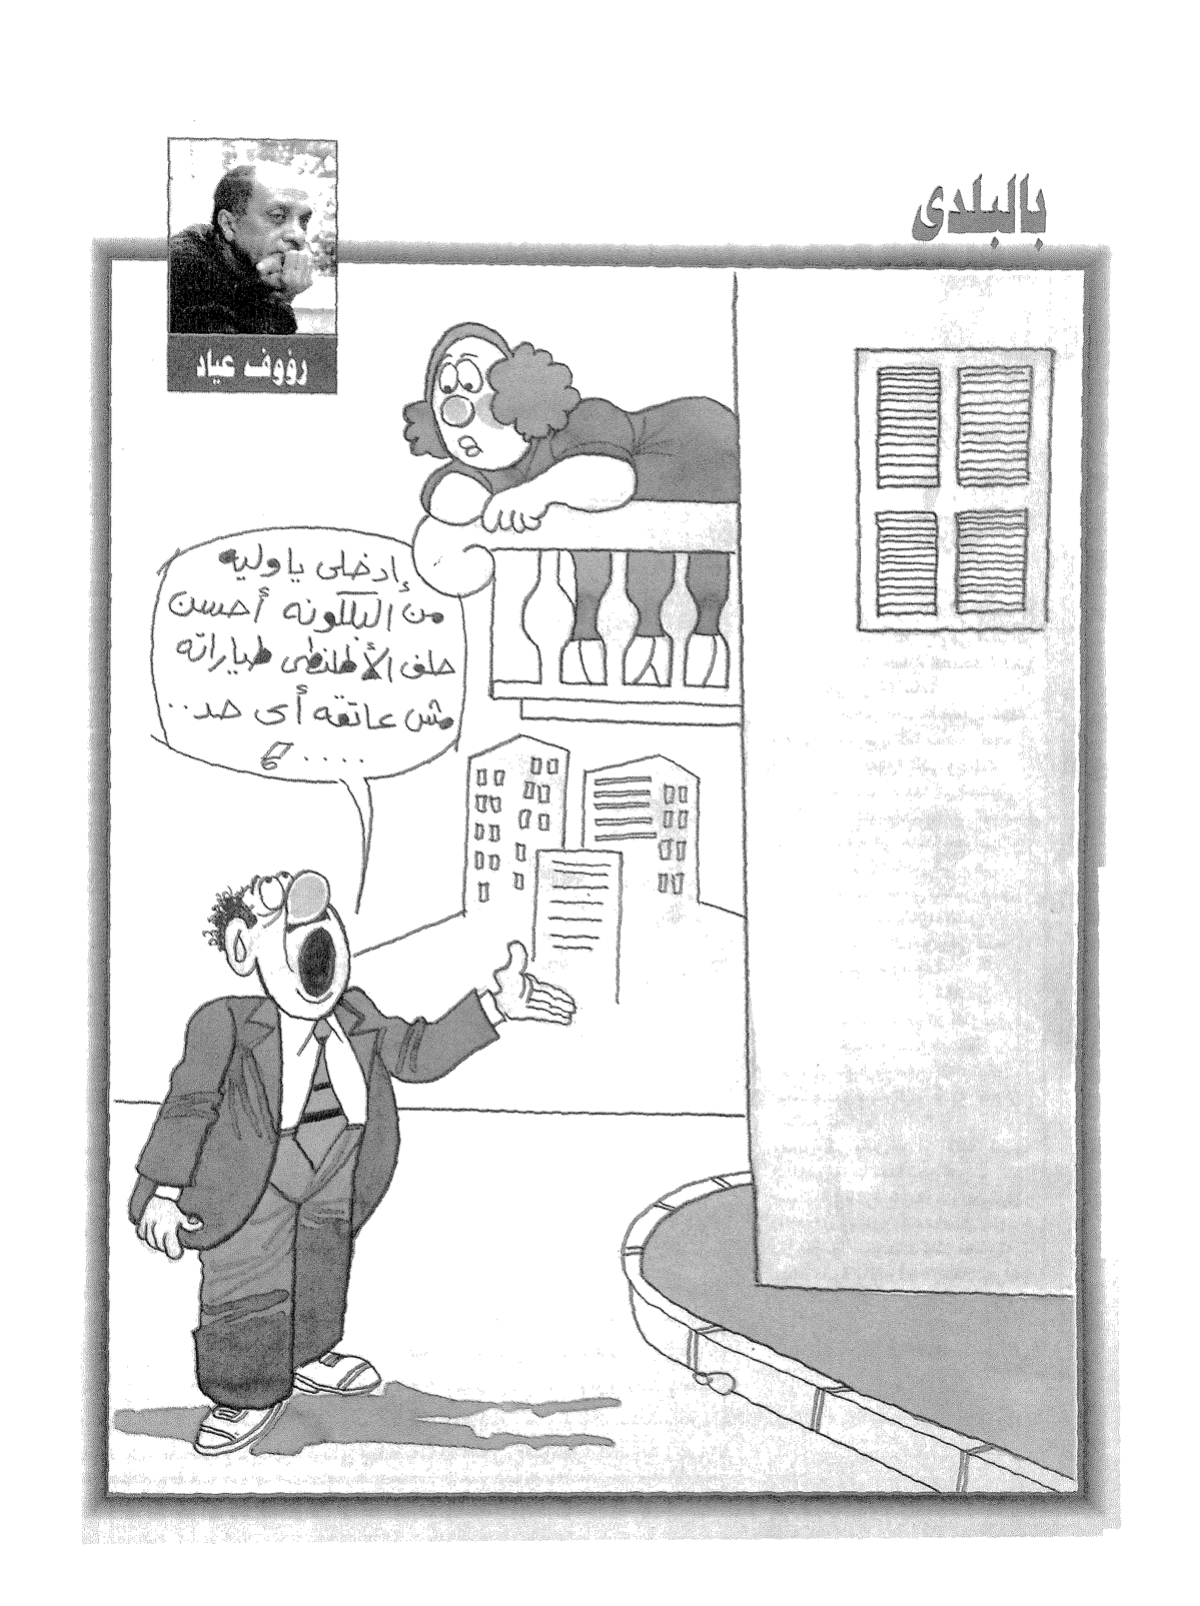 بالبلدى
رؤوف عياد
إدخلى يا وليه
من البلكونه أحسن
حلف الأطلنطى طياراته
مش عاتقه أى حد..
....